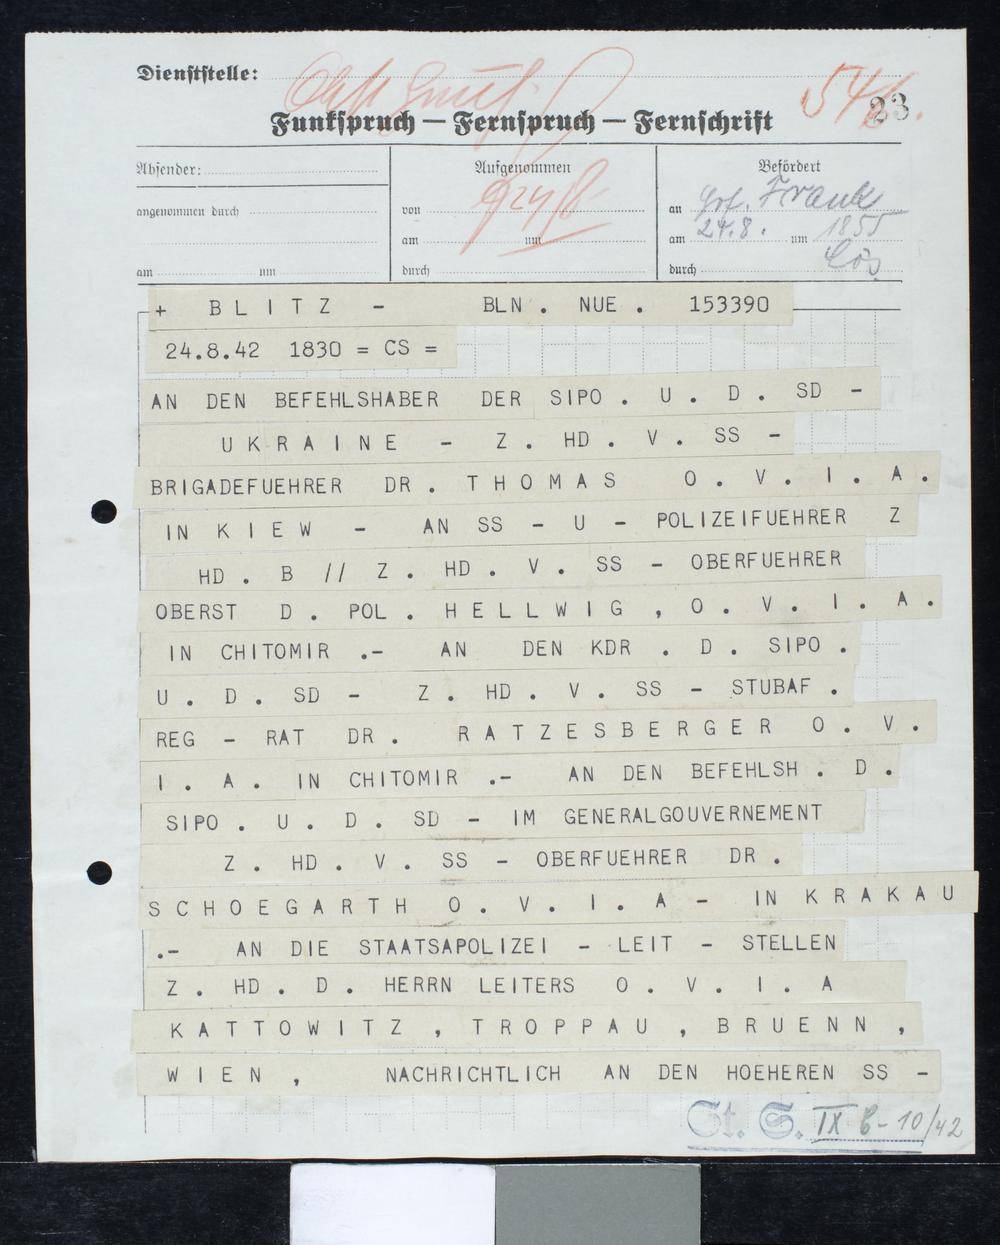 Dienststelle:
54
23
Funkspruch — Fernspruch — Fernschrift
Absender:
angenommen durch
am um
Aufgenommen
von
am um
durch
Befördert
an Frank
am 24.8. um 1855
durch
+ BLITZ - BLN. NUE. 153390
24.8.42 1830 = CS =
AN DEN BEFEHLSHABER DER SIPO. U. D. SD -
UKRAINE - Z. HD. V. SS -
BRIGADEFUEHRER DR. THOMAS O. V. I. A.
IN KIEW - AN SS - U - POLIZEIFUEHRER Z
HD. B // Z. HD. V. SS - OBERFUEHRER
OBERST D. POL. HELLWIG, O. V. I. A.
IN CHITOMIR .- AN DEN KDR . D. SIPO.
U. D. SD - Z. HD. V. SS - STUBAF.
REG - RAT DR. RATZESBERGER O. V.
I. A. IN CHITOMIR .- AN DEN BEFEHLSH. D.
SIPO. U. D. SD - IM GENERALGOUVERNEMENT
Z. HD. V. SS - OBERFUEHRER DR.
SCHOEGARTH O. V. I. A - IN KRAKAU
.- AN DIE STAATSAPOLIZEI - LEIT - STELLEN
Z. HD. D. HERRN LEITERS O. V. I. A
KATTOWITZ, TROPPAU, BRUENN,
WIEN, NACHRICHTLICH AN DEN HOEHEREN SS -
St. S. IX B-10/42